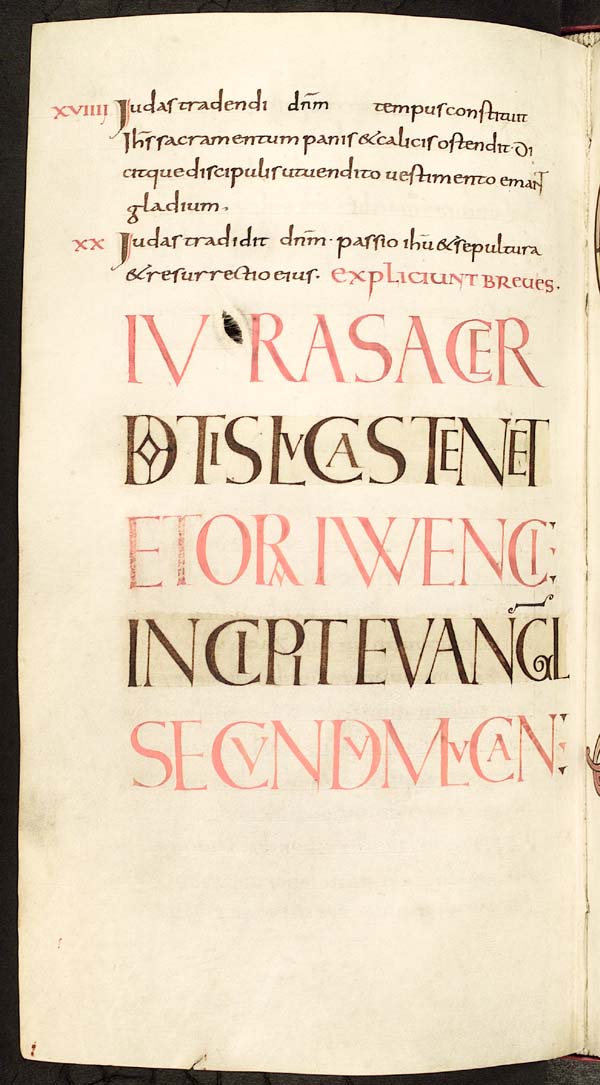 XVIIII Judas tradendi dn̄m tempus constituit
Ih̄s sacramentum panis & calicis ostendit · Di
citque discipulis ut uendito uestimento emant
gladium.
XX Judas tradidit dn̄m · passio ih̄u & sepultura
& resurrectio eius. EXPLICIUNT BREUES.
IV RA SACER
DOTIS LVCAS TENET
ET ORA IVVENCI:
INCIPIT EVANGL̄
SECVNDVM LVCAN: